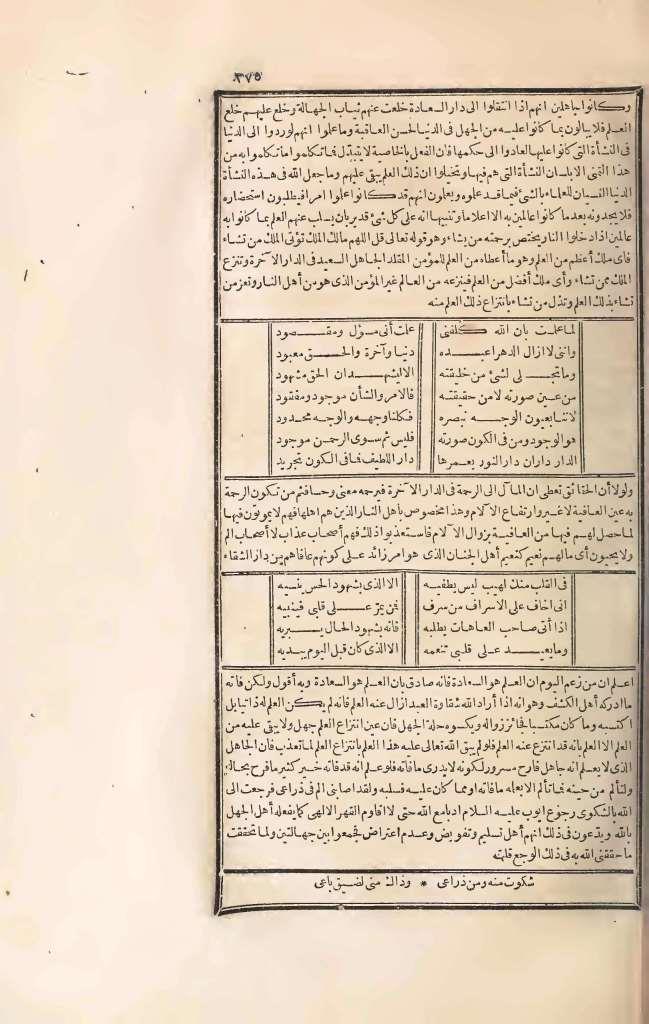 ٣٧٥
وكانوا جاهلين انهم اذا انتقلوا الى دار السعادة خلعت عنهم ثياب الجهالة وخلع عليهم خلع
العلم فلا يبالون بما كانوا عليه من الجهل فى الدنيا لحسن العاقبة وما علموا انهم لو ردوا الى الدنيا
فى النشأة التى كانوا عليها لعادوا الى حكمها فان الفعل بالخاصية لا يتبدل فما تكلموا ما تكلموا به من
هذا التمنى الا بلسان النشأة التى هم فيها وتخيلوا ان ذلك العلم يبقى عليهم وما جعل الله فى هذه النشأة
الدنيا النسيان للعلماء بالشئ فيما قد علموه ويعلمون انهم قد كانوا علموا امرا فيطلبون استحضاره
فلا يجدونه بعد ما كانوا عالمين به الا اعلاما وتنبيها انه على كل شئ قدير بان يسلب عنهم العلم بما كانوا به
عالمين اذا دخلوا النار يختص برحمته من يشاء وهو قوله تعالى قل اللهم مالك الملك تؤتى الملك من تشاء
فاى ملك أعظم من العلم وهو ما أعطاه من العلم للمؤمن المقلد الجاهل السعيد فى الدار الآخرة وتنزع
الملك ممن تشاء وأى ملك أفضل من العلم فينزعه من العالم غير المؤمن الذى هو من أهل النار وتعز من
تشاء بذلك العلم وتذل من تشاء بانتزاع ذلك العلم منه
لما علمت بان الله كلفنى علمت أنى مسؤل ومقصود
واننى لا ازال الدهر اعبده دنيا وآخرة والحق معبود
وما تجلى لشئ من خليقته الا ليشهدان الحق مشهود
من عين صورته لا من حقيقته فالامر والشأن موجود ومفقود
لاننا بعيون الوجه نبصره فكلنا وجهه والوجه محدود
هو الوجود ومن فى الكون صورته فليس ثم سوى الرحمن موجود
الدار داران دار النور يعمرها دار اللطيف فما فى الكون تجريد
ولولا أن الحقائق تعطى ان المآل الى الرحمة فى الدار الآخرة فيرحمه معنى وحسا فثم من تكون الرحمة
به عين العافية لا غير وارتفاع الآلام وهذا مخصوص باهل النار الذين هم اهلها فهم لا يموتون فيها
لما حصل لهم فيها من العافية بزوال الآلام فاستعذبوا ذلك فهم أصحاب عذاب لا أصحاب الم
ولا يحيون أى ما لهم نعيم كنعيم أهل الجنان الذى هو امر زائد على كونهم عافاهم من دار الشقاء
فى القلب منك لهيب ليس يطفيه الا الذى بشهود الحس ينسيه
انى اخاف على الاسراف من سرف فمن يمر على قلبى فينبيه
اذا أتى صاحب العاهات يطلبه فانه بشهود الحال يبريه
وما يعيد على قلبى تنعمه الا الذى كان قبل اليوم يبديه
اعلم ان من زعم اليوم ان العلم هو السعادة فانه صادق بان العلم هو السعادة وبه أقول ولكن فاته
ما ادركه أهل الكشف وهو انه اذا أراد الله شقاوة العبد ازال عنه العلم فانه لم يكن العلم له ذاتيا بل
اكتسبه وما كان مكتسبا فجائز زواله ويكسوه حلة الجهل فان عين انتزاع العلم جهل ولا يبقى عليه من
العلم الا العلم بانه قد انتزع عنه العلم فلو لم يبق الله تعالى عليه هذا العلم بانتزاع العلم لما تعذب فان الجاهل
الذى لا يعلم انه جاهل فارح مسرور لكونه لا يدرى ما فاته فلو علم انه قد فاته خير كثير ما فرح بحاله
ولتألم من حينه فما تألم الا بعلمه ما فاته او مما كان عليه فسلبه ولقد اصابنى الم فى ذراعى فرجعت الى
الله بالشكوى رجوع ايوب عليه السلام ادبا مع الله حتى لا اقاوم القهر الالهى كما يفعله أهل الجهل
بالله ويدّعون فى ذلك انهم أهل تسليم وتفويض وعدم اعتراض فجمعوا بين جهالتين ولما تحققت
ما حققنى الله به فى ذلك الوجع قلته
شكوت منه ومن ذراعى * وذاك منى لضيق باعى